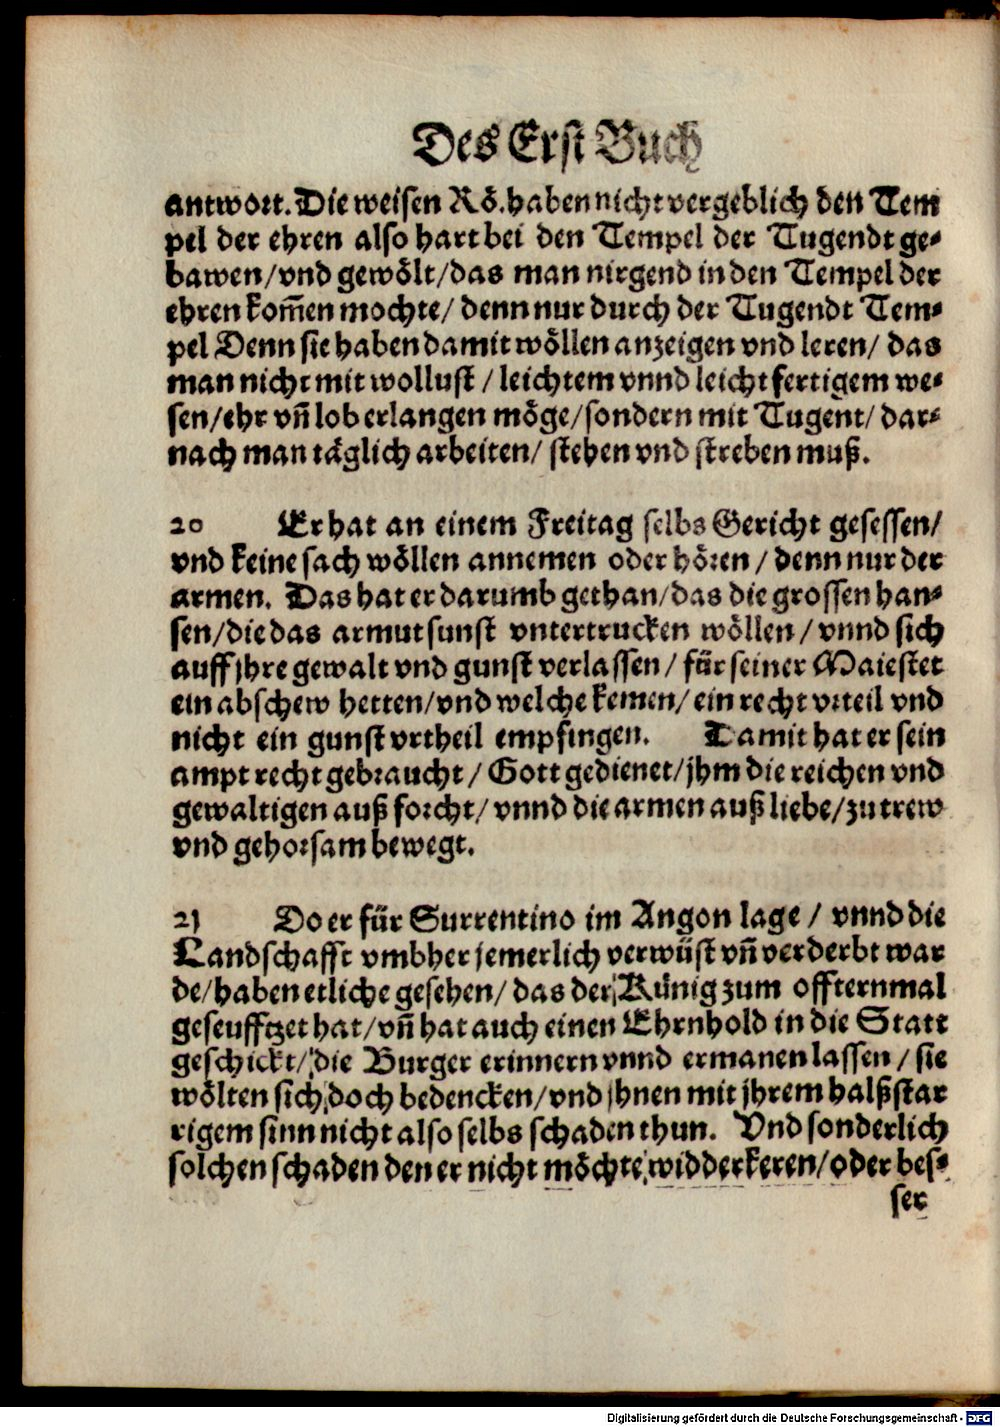 Des Erst Buch
antwort. Die weisen Rö. haben nicht vergeblich den Tem
pel der ehren also hart bei den Tempel der Tugendt ge-
bawen/vnd gewölt/das man nirgend in den Tempel der
ehren kom̃en mochte/ denn nur durch der Tugendt Tem-
pel Denn sie haben damit wöllen anzeigen vnd leren/ das
man nicht mit wollust / leichtem vnnd leichtfertigem we-
sen/ehr vñ lob erlangen möge/sondern mit Tugent/ dar-
nach man täglich arbeiten/ stehen vnd streben muß.
20 Er hat an einem Freitag selbs Gericht gesessen/
vnd keine sach wöllen annemen oder hören / denn nur der
armen. Das hat er darumb gethan/das die grossen han-
sen/die das armut sunst vntertrucken wöllen / vnnd sich
auff jhre gewalt vnd gunst verlassen / für seiner Maiestet
ein abschew hetten/vnd welche kemen/ ein recht vrteil vnd
nicht ein gunst vrtheil empfingen. Damit hat er sein
ampt recht gebraucht / Gott gedienet/jhm die reichen vnd
gewaltigen auß forcht/ vnnd die armen auß liebe/zu trew
vnd gehorsam bewegt.
21 Do er für Surrentino im Angon lage / vnnd die
Landschafft vmbher jemerlich verwüst vñ verderbt war
de/haben etliche gesehen/ das der Künig zum offternmal
geseufftzet hat/vñ hat auch einen Ehrnhold in die Statt
geschickt/ die Burger erinnern vnnd ermanen lassen / sie
wölten sich doch bedencken/vnd jhnen mit jhrem halßstar
rigem sinn nicht also selbs schaden thun. Vnd sonderlich
solchen schaden den er nicht möchte widderkeren/oder bes-
ser
Digitalisierung gefördert durch die Deutsche Forschungsgemeinschaft - DFG